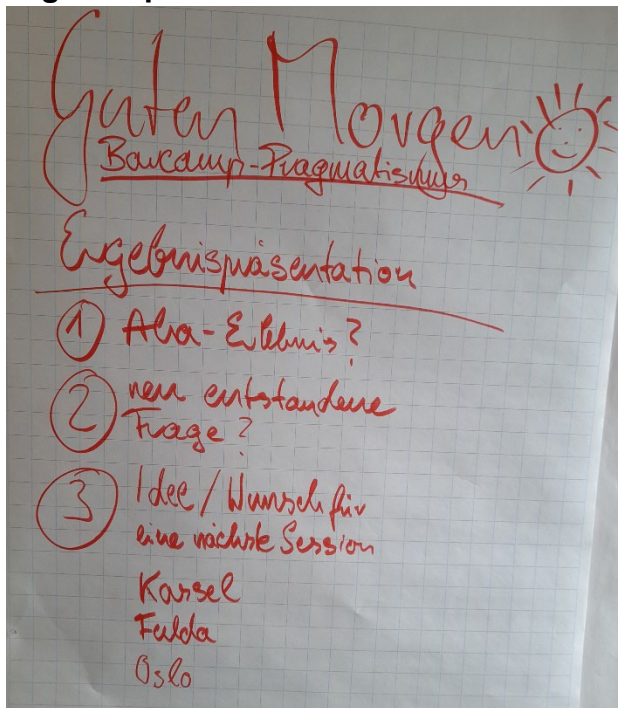 Guten Morgen
Barcamp-Pragmatismus
Ergebnispräsentation
1 Aha-Erlebnis?
2 neu entstandene
Frage?
3 Idee/Wunsch für
eine nächste Session
Kassel
Fulda
Oslo